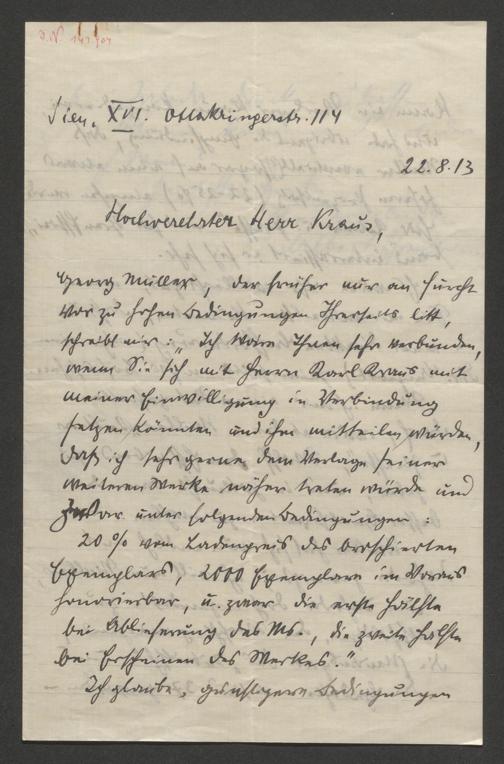 J.N. 147904
Wien, XVI. Ottakringerstr. 114
22.8.13
Hochverehrter Herr Kraus,
Georg Müller, der früher nur an Furcht
vor zu hohen Bedingungen Ihrerseits litt,
schreibt mir: „Ich wäre Ihnen sehr verbunden,
wenn Sie sich mit Herrn Karl Kraus mit
meiner Einwilligung in Verbindung
setzen könnten und ihm mitteilen würden,
daß ich sehr gerne dem Verlage seiner
weiteren Werke näher treten würde und
zwar unter folgenden Bedingungen:
20% vom Ladenpreis des broschierten
Exemplars, 2000 Exemplare im Voraus
honorierbar, u. zwar die erste Hälfte
bei Ablieferung des Ms., die zweite Hälfte
bei Erscheinen des Werkes."
Ich glaube, günstigere Bedingungen